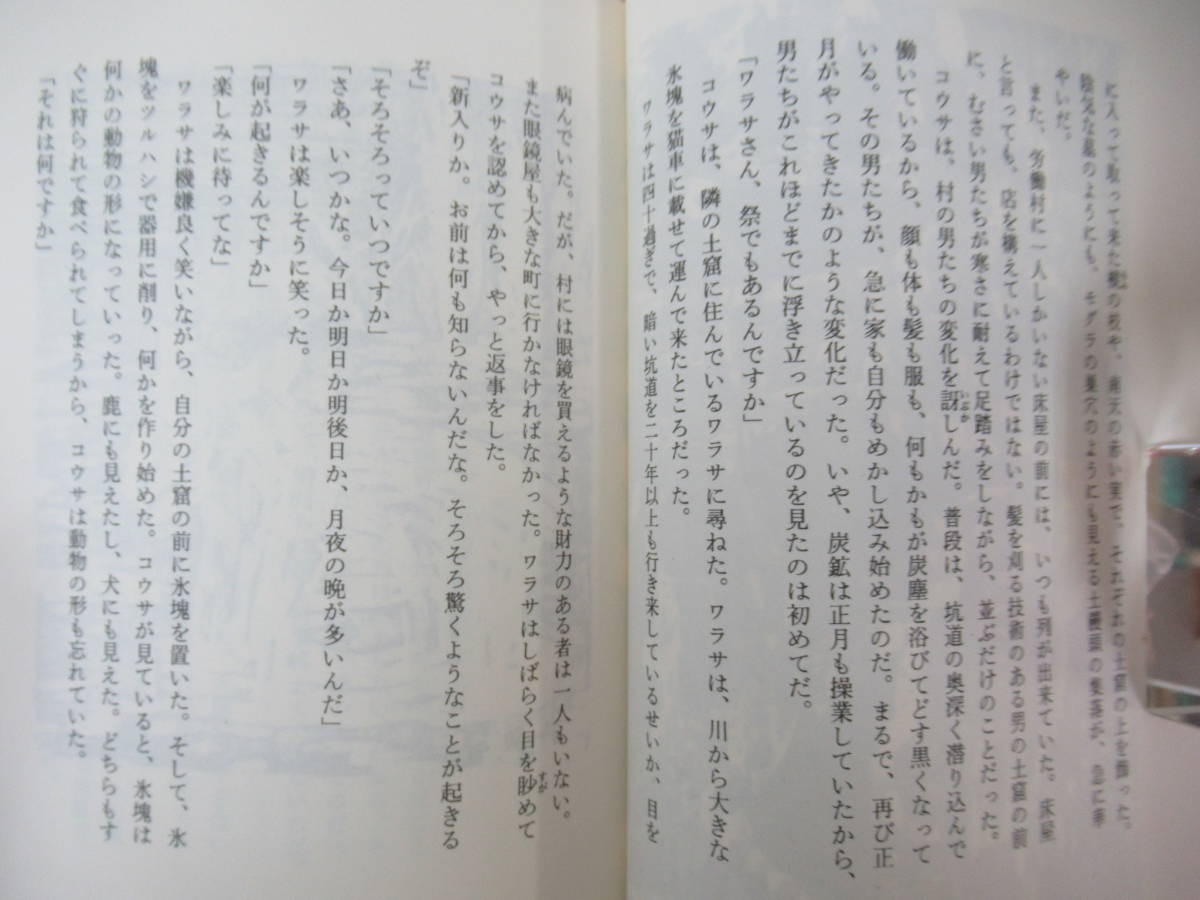 に入って取って来た樅の枝や、南天の赤い実で、それぞれの土窟の上を飾った。
陰気な墓のようにも、モグラの巣穴のようにも見える土饅頭の集落が、急に華
やいだ。
また、労働村に一人しかいない床屋の前には、いつも列が出来ていた。床屋
と言っても、店を構えているわけではない。髪を刈る技術のある男の土窟の前
に、むさい男たちが寒さに耐えて足踏みをしながら、並ぶだけのことだった。
コウサは、村の男たちの変化を訝しんだ。普段は、坑道の奥深く潜り込んで
働いているから、顔も体も髪も服も、何もかもが炭塵を浴びてどす黒くなって
いる。その男たちが、急に家も自分もめかし込み始めたのだ。まるで、再び正
月がやってきたかのような変化だった。いや、炭鉱は正月も操業していたから、
男たちがこれほどまでに浮き立っているのを見たのは初めてだ。
「ワラサさん、祭でもあるんですか」
コウサは、隣の土窟に住んでいるワラサに尋ねた。ワラサは、川から大きな
氷塊を猫車に載せて運んで来たところだった。
ワラサは四十過ぎで、暗い坑道を二十年以上も行き来しているせいか、目を
病んでいた。だが、村には眼鏡を買えるような財力のある者は一人もいない。
また眼鏡屋も大きな町に行かなければなかった。ワラサはしばらく目を眇めて
コウサを認めてから、やっと返事をした。
「新入りか。お前は何も知らないんだな。そろそろ驚くようなことが起きる
ぞ」
「そろそろっていつですか」
「さあ、いつかな。今日か明日か明後日か、月夜の晩が多いんだ」
ワラサは楽しそうに笑った。
「何が起きるんですか」
「楽しみに待ってな」
ワラサは機嫌良く笑いながら、自分の土窟の前に氷塊を置いた。そして、氷
塊をツルハシで器用に削り、何かを作り始めた。コウサが見ていると、氷塊は
何かの動物の形になっていった。鹿にも見えたし、犬にも見えた。どちらもす
ぐに狩られて食べられてしまうから、コウサは動物の形も忘れていた。
「それは何ですか」